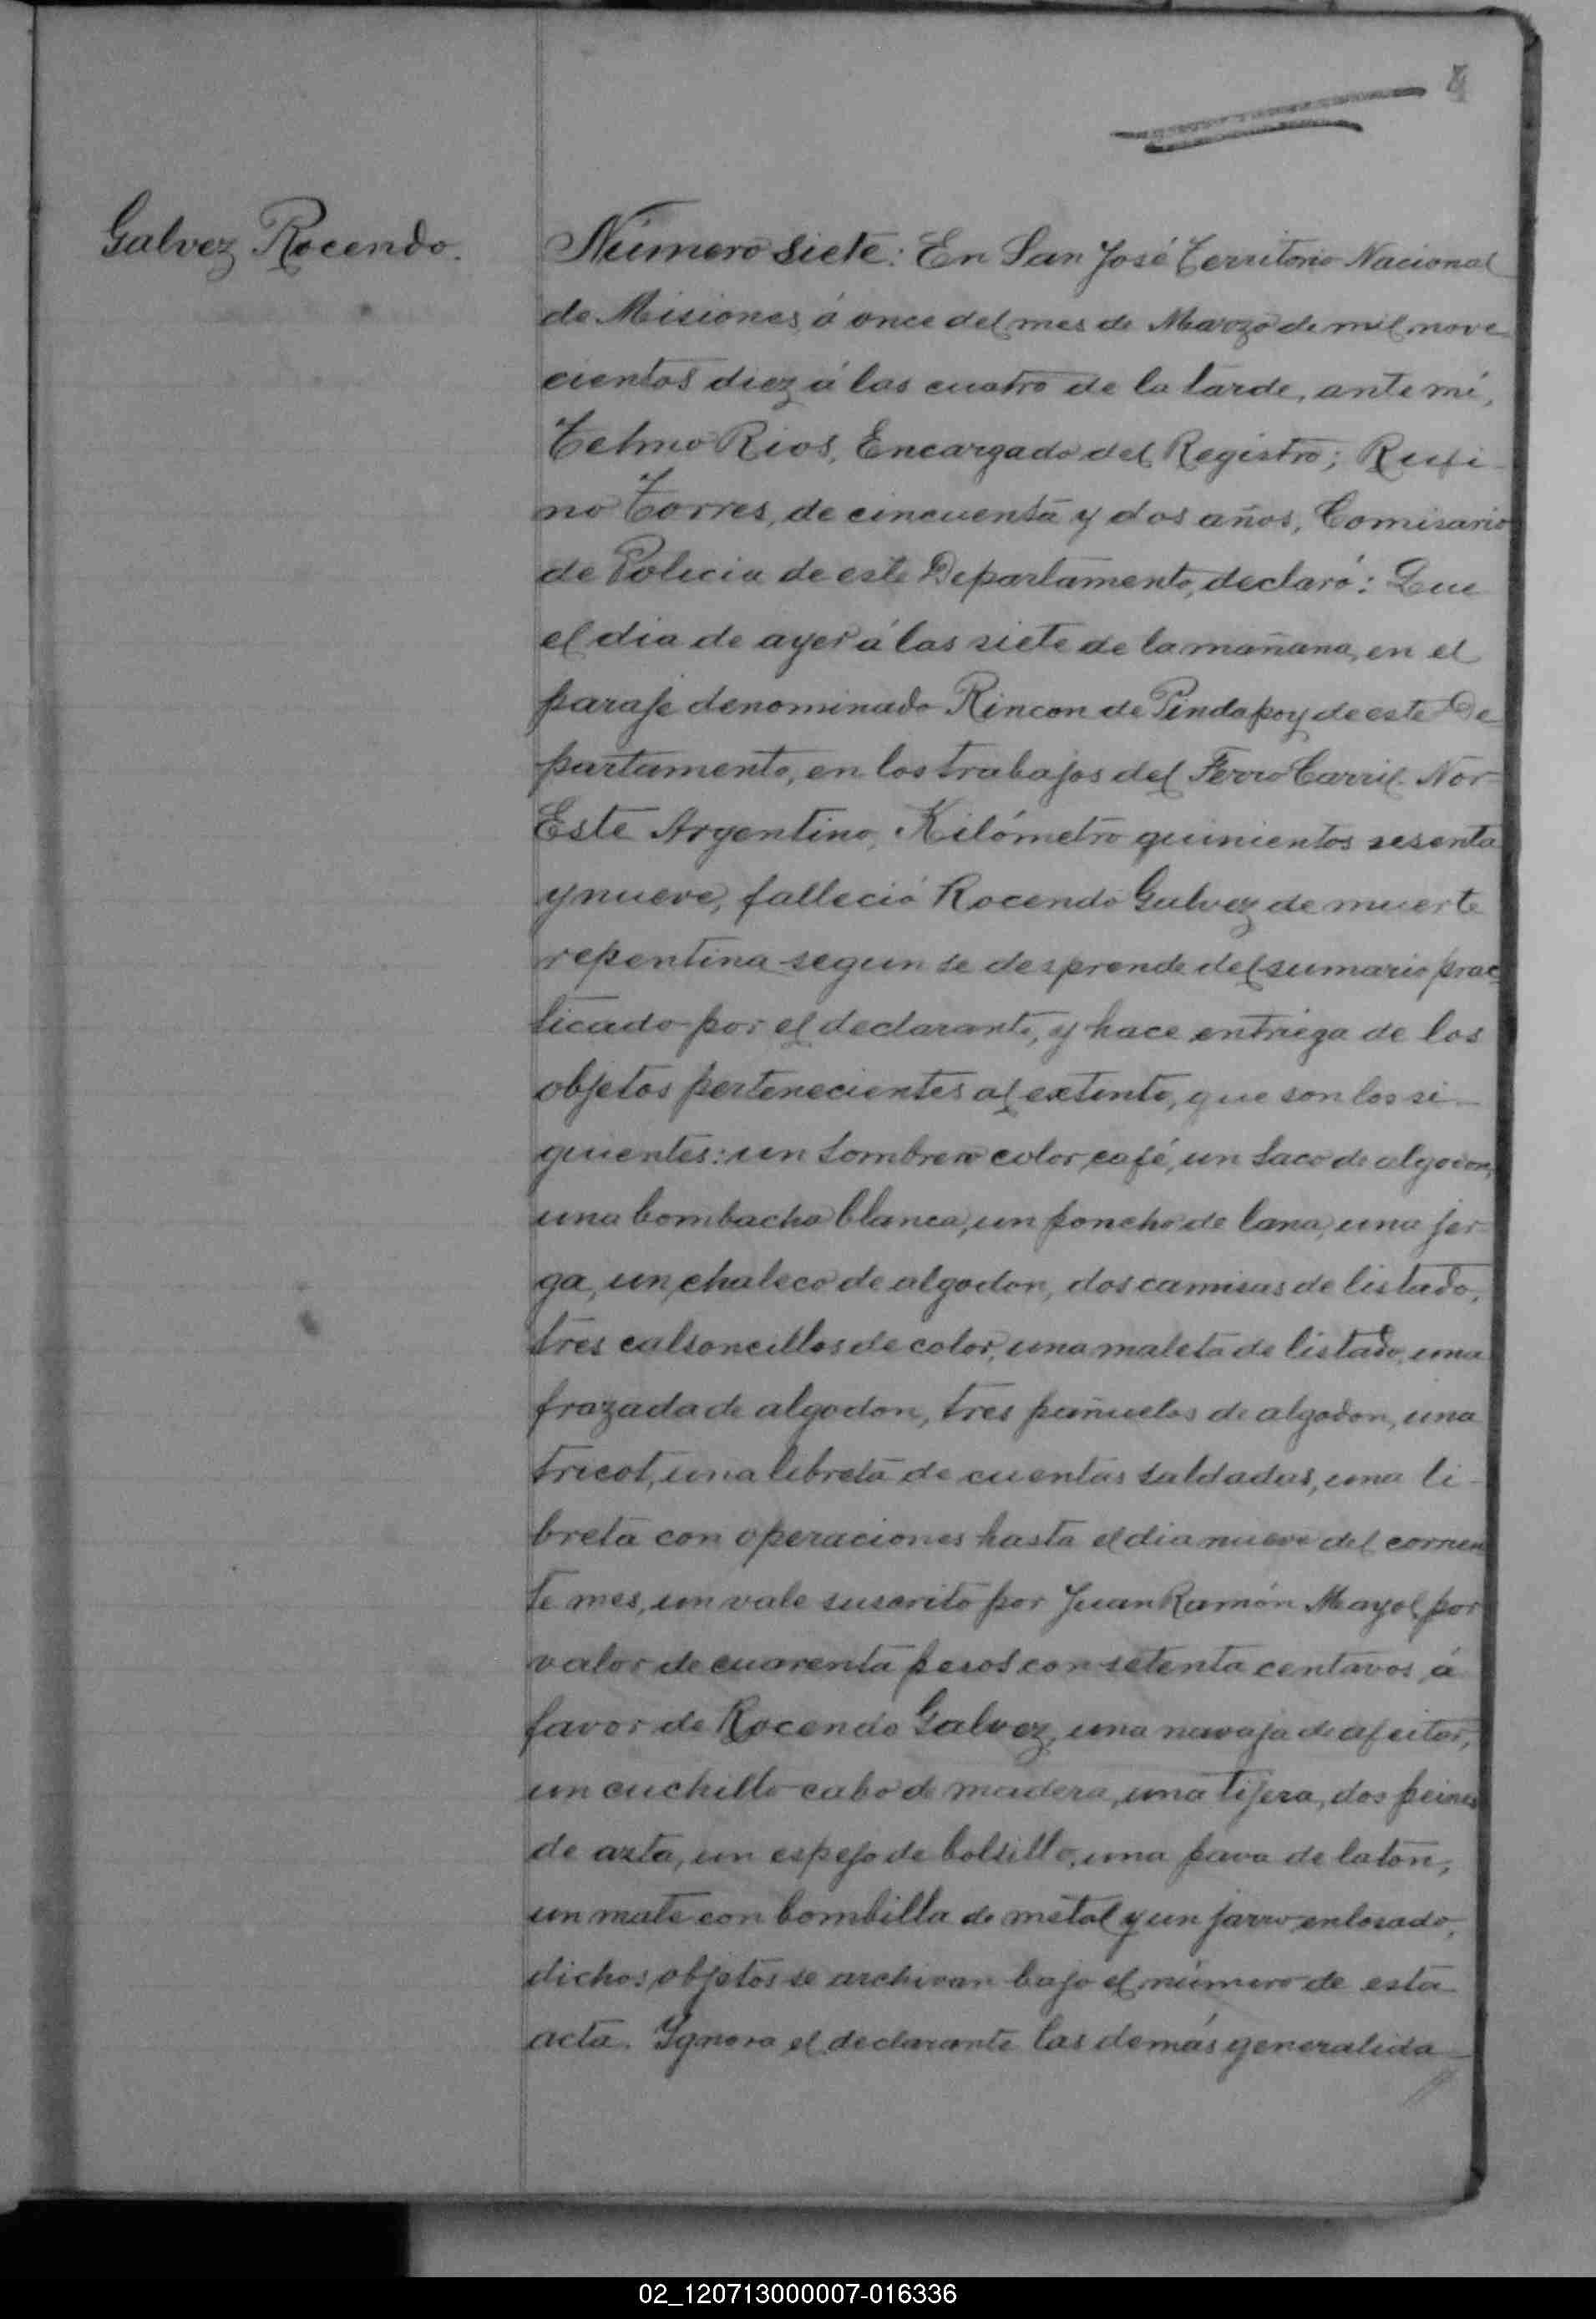 4
Galvez Rocendo.
Número siete: En San José Territorio Nacional
de Misiones, á once del mes de Marzo de mil nove
cientos diez á las cuatro de la tarde, ante mí,
Telmo Rios, Encargado del Registro; Rufi-
no Torres, de cincuenta y dos años, Comisario
de Policia de este Departamento, declaró: Que
el dia de ayer á las siete de la mañana, en el
paraje denominado Rincon de Pindapoy de este De
partamento, en los trabajos del Ferro Carril Nor-
Este Argentino, Kilómetro quinientos sesenta
y nueve, falleció Rocendo Galvez de muerte
repentina segun se desprende del sumario prac
ticado por el declarante, y hace entriega de los
objetos pertenecientes al extinto, que son los si-
guientes: un sombrero color café, un saco de algodon,
una bombacha blanca, un poncho de lana, una jer-
ga, un chaleco de algodon, dos camisas de listado,
tres calsoncillos de color, una maleta de listado, una
frazada de algodon, tres pañuelos de algodon, una
tricot, una libreta de cuentas saldadas, una li-
breta con operaciones hasta el dia nueve del corrien
te mes, un vale suscrito por Juan Ramón Mayol por
valor de cuarenta pesos con setenta centavos á
favor de Rocendo Galvez, una navaja de afeitar,
un cuchillo cabo de madera, una tijera, dos peines
de azta, un espejo de bolsillo, una pava de laton,
un mate con bombilla de metal y un jarro enlosado,
dichos objetos se archivan bajo el número de esta
acta. Ygnora el declarante las demás generalida-
02_120713000007-016336